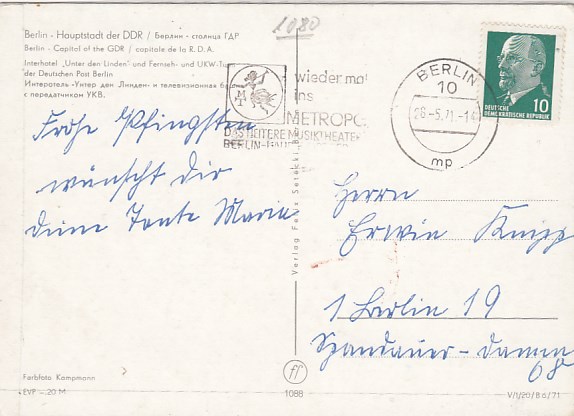 1080
Berlin - Hauptstadt der DDR / Берлин - столица ГДР
Berlin - Capitol of the GDR / capitole de la R. D. A.
Interhotel „Unter den Linden" und Fernseh- und UKW-Tu
der Deutschen Post Berlin
Интеротель „Унтер ден Линден" и телевизионная
с передатчиком УКВ.
MT
wieder mal
ins
METROPO
DAS HEITERE MUSIKTHEATER
BERLIN
BERLIN
10
28.-5.71.-14
mp
10
DEUTSCHE
DEMOKRATISCHE REPUBLIK
Frohe Pfingsten
wünscht dir
deine Tante Maria
Verlag Felix Setecki, B
Herrn
Erwin Knipp
1 Berlin 19
Spandauer-Damm
68
Farbfoto Kampmann
EVP -.20 M
ff
1088
V/1/20/B 6/71